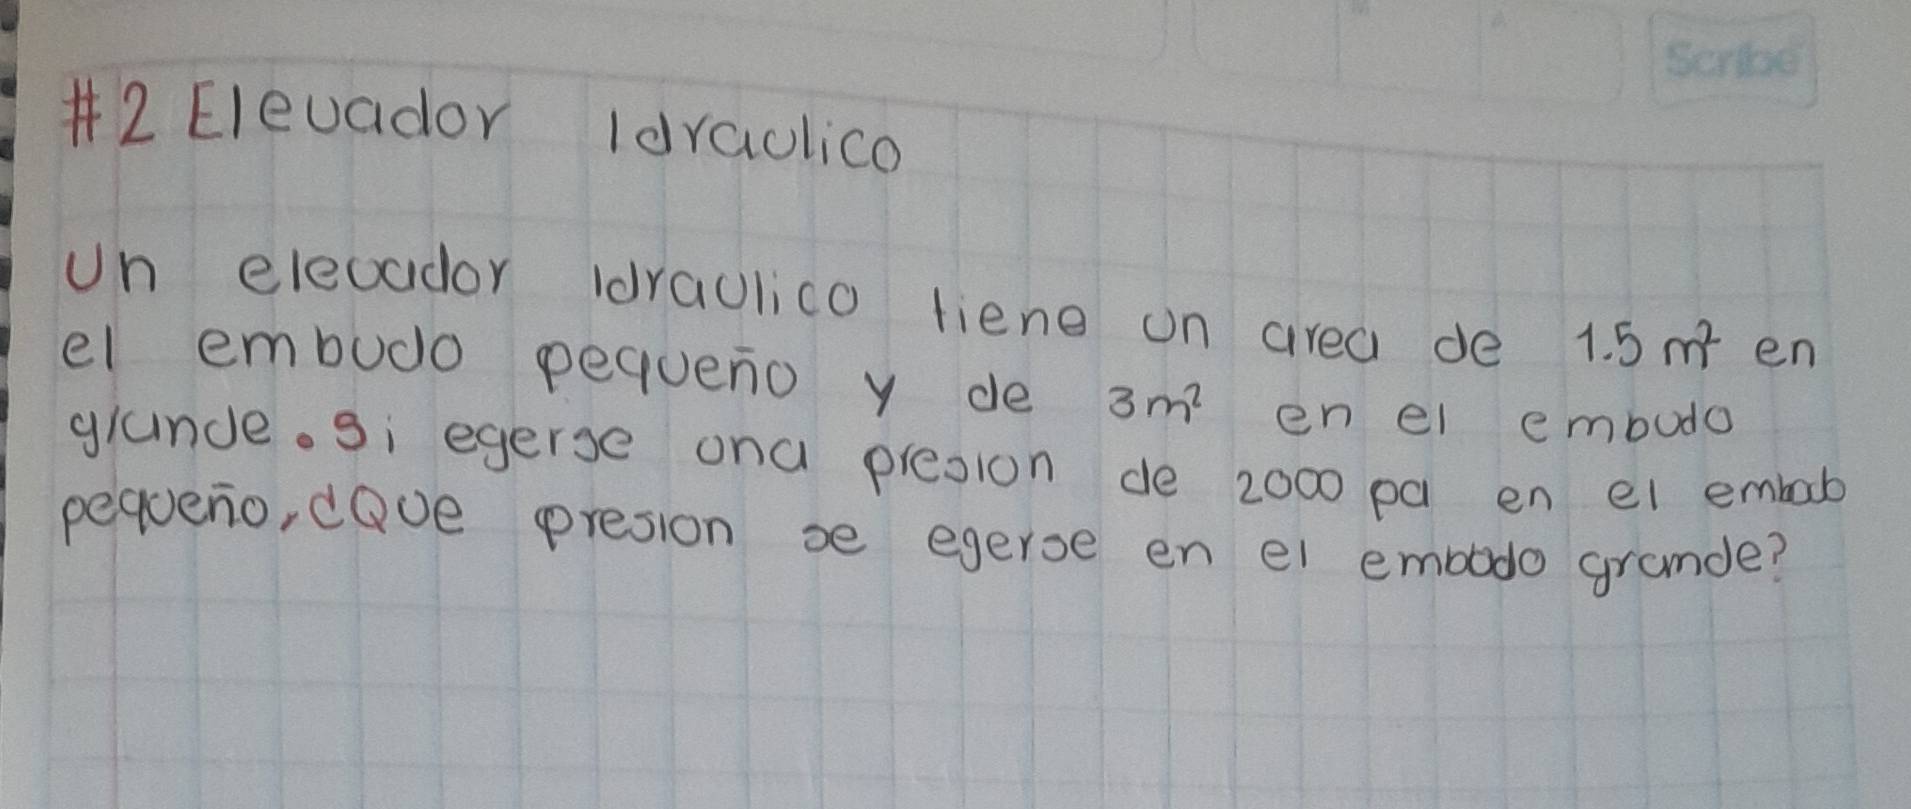 Scribe
#2 Elevador Idraulico
Un elevador idraulico tiene un area de 1.5 m² en
el embudo pequeño y de 3m² en el embudo
grande. Si egerse una presion de 2000 pa en el embudo
pequeño, ¿Que presion se egerse en el embudo grande?